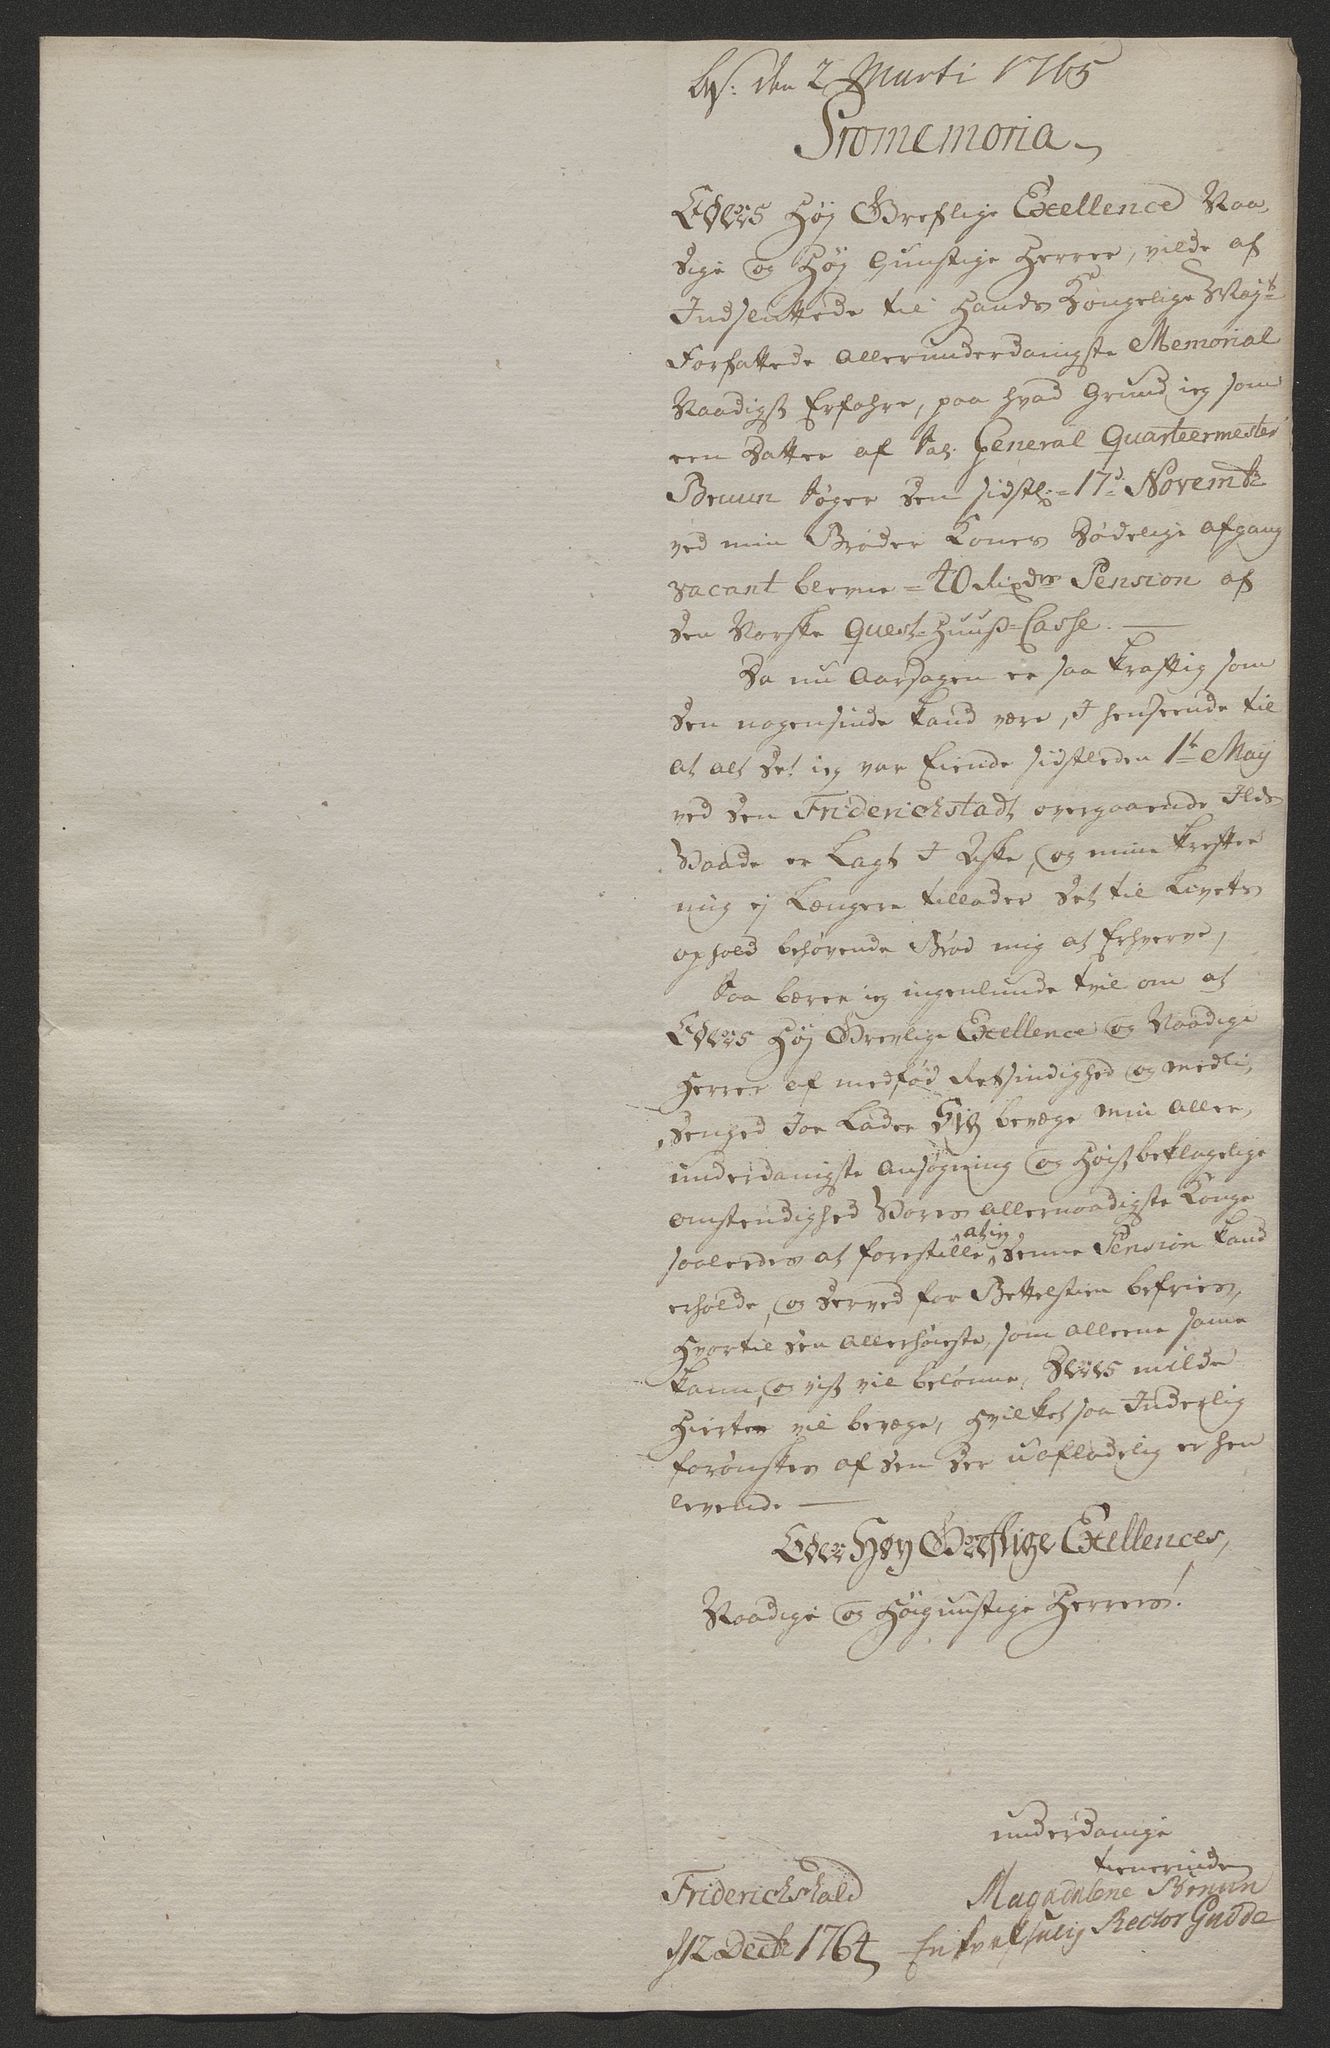 den 2 Marti 1765
Promemoria
Eders Høj Greflige Excellence Naa,
dige og Høj Gunstige Herrer, vilde af
Indsluttede til Hands Kongelige Mayt
Forfattede allerunderdanigste Memorial
Naadigst Erfahre, paa hvad Grund ieg som
een Datter af Sal: General Quarteermester
Bruun søger den sidstl: 17d Novembr
ved min Broder Kones Dødelige afgang
vacant blevne = 40 Rixdr Pension af
den Norske Quest=Huuss=Casse.
Da nu Aarsagen er saa kraftig som
den nogensinde kand være, I henseende til
at alt det ieg var Eiende sidstleden 1te Maij
ved den Friderichstadt overgaaende Ilds
Vaade er Lagt I Aske, og mine krefter
mig ej Længere tillader det til Livets
ophold behøvende Brød mig at Erhverve,
Saa bærer ieg ingenlunde tvil om at
Eders Høj Grevlige Excellence og Naadige
Herrer af medfød Retsindighed og medli,
denhed Joe Lader Sig bevæge min aller,
underdanigste Ansøgning og Høist beklagelige
omstendighed Vores allernaadigste Konge
saaleedes at forestille, at ieg denne Pension kand
erholde, og derved for Bettelstien befries,
Hvortil den Allerhøieste, som alleene same
kann, og vist vil belønne, Deres milde
Hierter vil bevæge, Hvilket saa Inderlig
forønskes af den der uafladelig er hen
levende
Eders Høy Grefflige Excellences,
Naadige og Høigunstige Herrers!
underdanige
tienerinde
Friderichshald
Magdalene Bruun
d 12 Decbr 1764
Enke Rector Gudde